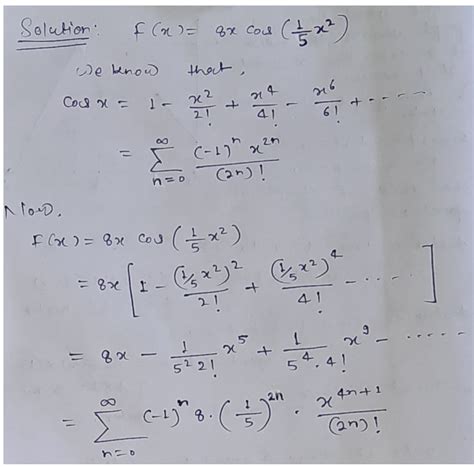 Solution: F(x) = 8x cos(1/5 x²)
We know that,
cos x = 1 - x²/2! + x⁴/4! - x⁶/6! + ------
= ∑_{n=0}^{∞} (-1)ⁿ x²ⁿ/(2n)!
Now,
F(x) = 8x cos(1/5 x²)
= 8x [1 - (1/5 x²)²/2! + (1/5 x²)⁴/4! - ------]
= 8x - 1/(5² 2!) x⁵ + 1/(5⁴ · 4!) x⁹ - ------
= ∑_{n=0}^{∞} (-1)ⁿ 8 · (1/5)²ⁿ · x⁴ⁿ⁺¹/(2n)!